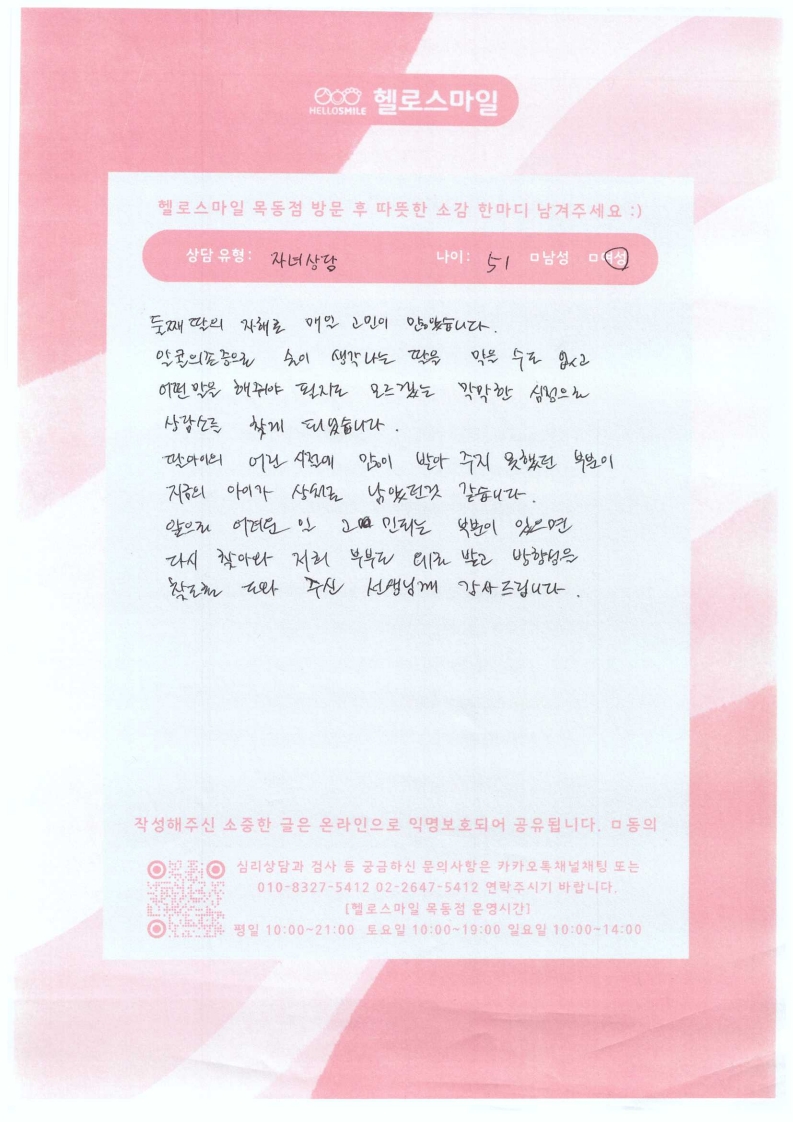 HELLOSMILE 헬로스마일
헬로스마일 목동점 방문 후 따뜻한 소감 한마디 남겨주세요 :)
상담 유형: 자녀상담 나이: 51 ㅁ남성 ㅁ여성
둘째 딸의 자해로 매일 고민이 많았습니다.
알콜의존증으로 술이 생각나는 딸을 막을 수도 없고
어떤말을 해줘야 될지도 모르겠는 막막한 심정으로
상담소를 찾게 되었습니다.
딸아이의 어린 시절에 많이 받아 주지 못했던 부분이
지금의 아이가 상처로 남았던것 같습니다.
앞으로 어려운 일 고민되는 부분이 있으면
다시 찾아와 저희 부부도 위로 받고 방향성을
찾도록 도와 주신 선생님께 감사드립니다.
작성해주신 소중한 글은 온라인으로 익명보호되어 공유됩니다. ㅁ동의
심리상담과 검사 등 궁금하신 문의사항은 카카오톡채널채팅 또는
010-8327-5412 02-2647-5412 연락주시기 바랍니다.
[헬로스마일 목동점 운영시간]
평일 10:00~21:00 토요일 10:00~19:00 일요일 10:00~14:00